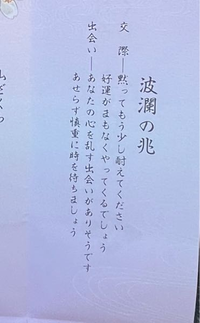 波瀾の兆
交際―黙ってもう少し耐えてください
好運がまもなくやってくるでしょう
出会い―あなたの心を乱す出会いがありそうです
あせらず慎重に時を待ちましょう